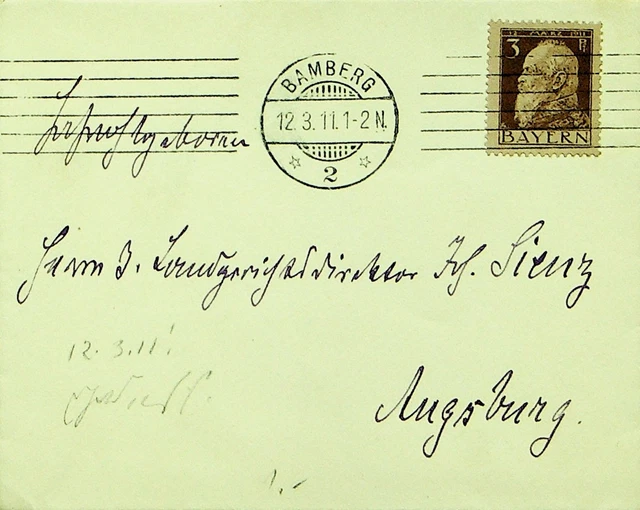 12. MÄRZ 1911
3 Pf
BAYERN
BAMBERG
12.3.11.1-2 N.
2
Hochwohlgeboren
Herrn J. Landgerichtsdirektor Jch. Sienz
12.3.11!
Augsburg.
1.-